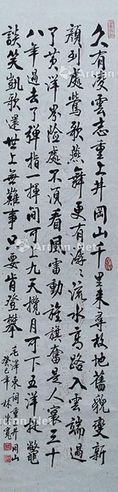 久有凌雲志重上井岡山千里来尋故地舊貌變新
顔到處鶯歌燕舞更有潺々流水高路入雲端過
了黄洋界險處不須看風雷動旌旗奮是人寰三十
八年過去了弹指一揮间可上九天攬月可下五洋捉鱉
談笑凱歌還世上無難事只要肯登攀
毛澤東詞重上井岡山
癸巳年 林